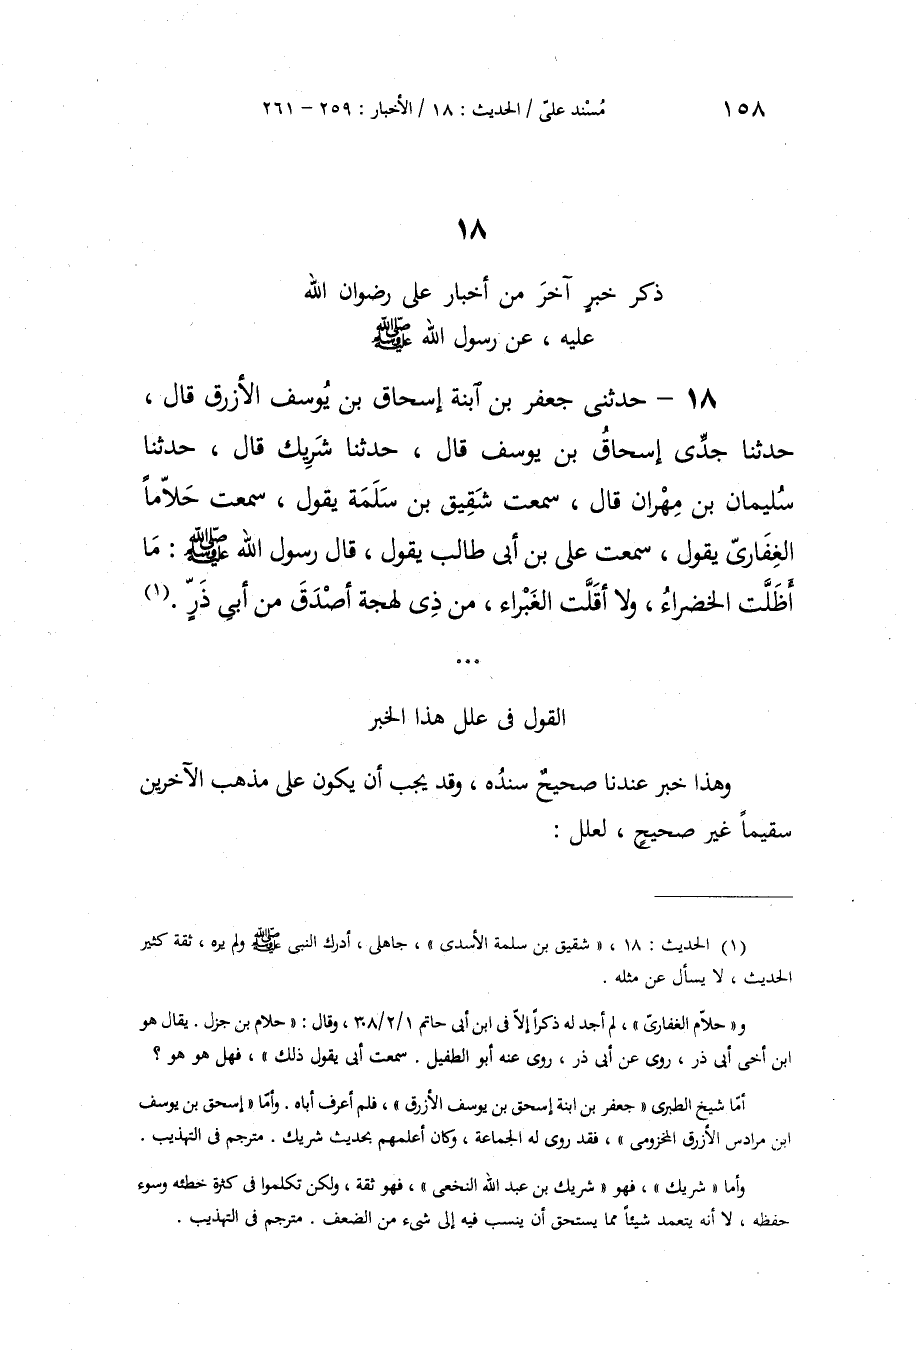 ١٥٨ مُسْند علىّ / الحديث : ١٨ / الأخبار : ٢٥٩ – ٢٦١
١٨
ذكر خبرٍ آخرَ من أخبار على رضوان الله
عليه ، عن رسول الله ﷺ
١٨ – حدثنى جعفر بن آبنة إسحاق بن يُوسف الأزرق قال ،
حدثنا جدِّى إسحاقُ بن يوسف قال ، حدثنا شَرِيك قال ، حدثنا
سُليمان بن مِهْران قال ، سمعت شَقِيق بن سَلَمَة يقول ، سمعت حَلاّماً
الغِفَارىّ يقول ، سمعت على بن أبى طالب يقول ، قال رسول الله ﷺ : مَا
أَظَلَّت الخضراءُ ، ولا أقَلَّت الغَبْراء ، من ذِى لهجة أصْدَقَ من أبىِ ذَرٍّ .(١)
...
القول فى علل هذا الخبر
وهذا خبر عندنا صحيحٌ سندُه ، وقد يجب أن يكون على مذهب الآخرين
سقيماً غير صحيحٍ ، لعلل :
(١) الحديث : ١٨ ، « شقيق بن سلمة الأسدى » ، جاهلى ، أدرك النبى ﷺ ولم يره ، ثقة كثير
الحديث ، لا يسأل عن مثله .
و« حلاّم الغفارىّ » ، لم أجد له ذكراً إلاّ فى ابن أبى حاتم ٣٠٨/٢/١ ، وقال : « حلام بن جزل . يقال هو
ابن أخى أبى ذر ، روى عن أبى ذر ، روى عنه أبو الطفيل . سمعت أبى يقول ذلك » ، فهل هو هو ؟
أمّا شيخ الطبرى « جعفر بن ابنة إسحق بن يوسف الأزرق » ، فلم أعرف أباه . وأمّا « إسحق بن يوسف
ابن مرادس الأزرق المخزومى » ، فقد روى له الجماعة ، وكان أعلمهم بحديث شريك . مترجم فى التهذيب .
وأما « شريك » ، فهو « شريك بن عبد الله النخعى » ، فهو ثقة ، ولكن تكلموا فى كثرة خطئه وسوء
حفظه ، لا أنه يتعمد شيئاً مما يستحق أن ينسب فيه إلى شىء من الضعف . مترجم فى التهذيب .